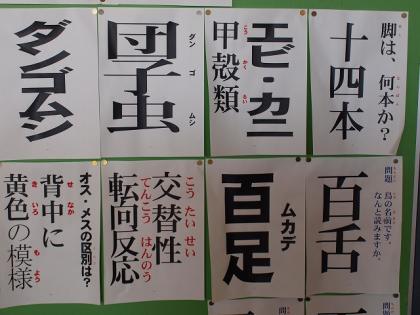 ダンゴムシ
団子虫
ダンゴムシ
エビ・カニ
甲殻類
こうかくるい
脚は、何本か?
なんぼん
十四本
オス・メスの区別は?
背中に
せなか
黄色の模様
きいろもよう
交替性
こうたいせい
転回反応
てんこうはんのう
百足
ムカデ
問題 鳥の名前です。
なんと読みますか。
百舌
問題
問題